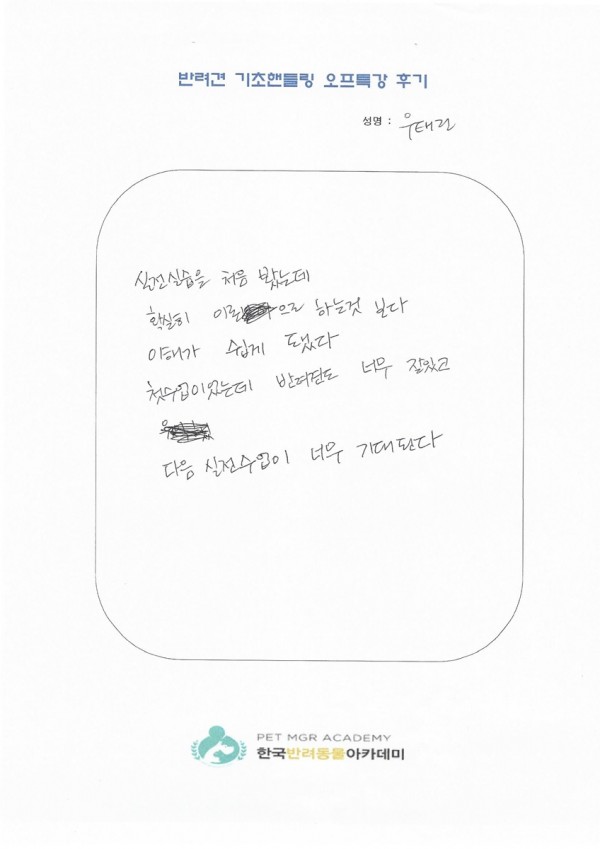 반려견 기초핸들링 오프특강 후기
성명 : 우태리
실전실습을 처음 봤는데
확실히 이론으로 하는것 보다
이해가 쉽게 됐다
첫수업이었는데 반려견도 너무 잘있고
다음 실전수업이 너무 기대된다
PET MGR ACADEMY
한국반려동물아카데미